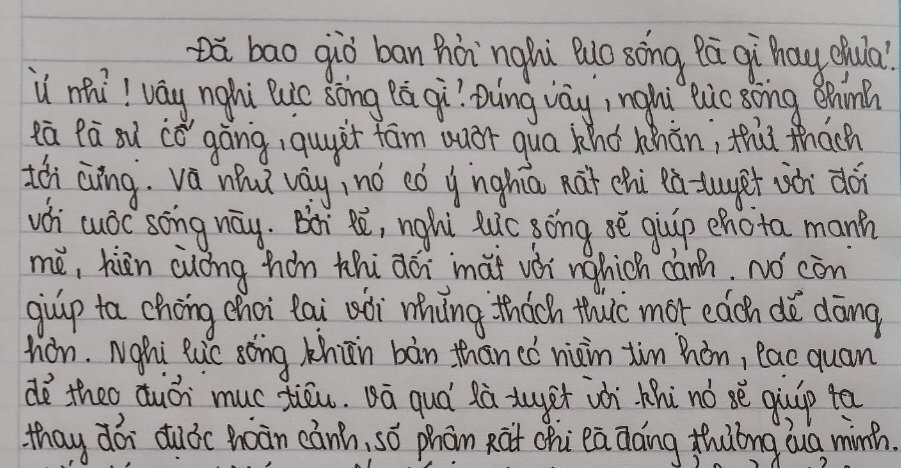 Đã bao giờ bạn hỏi nghị lực sống là gì hay chưa?
Ừ nhỉ! Vậy nghị lực sống là gì? Đúng vậy, nghị lực sống chính
là là sự cố gắng, quyết tâm vượt qua khó khăn, thử thách
tới cùng. Và như vậy, nó có ý nghĩa rất chi là tuyệt vời đối
với cuộc sống này. Bởi lẽ, nghị lực sống sẽ giúp cho ta mạnh
mẽ, kiên cường hơn khi đối mặt với nghịch cảnh. Nó còn
giúp ta chống chọi lại với những thách thức một cách dễ dàng
hơn. Nghị lực sống khiến bản thân có niềm tin hơn, lạc quan
để theo đuổi mục tiêu. Và quả là tuyệt vời khi nó sẽ giúp ta
thay đổi được hoàn cảnh, số phận rất chi là đáng thương của mình.